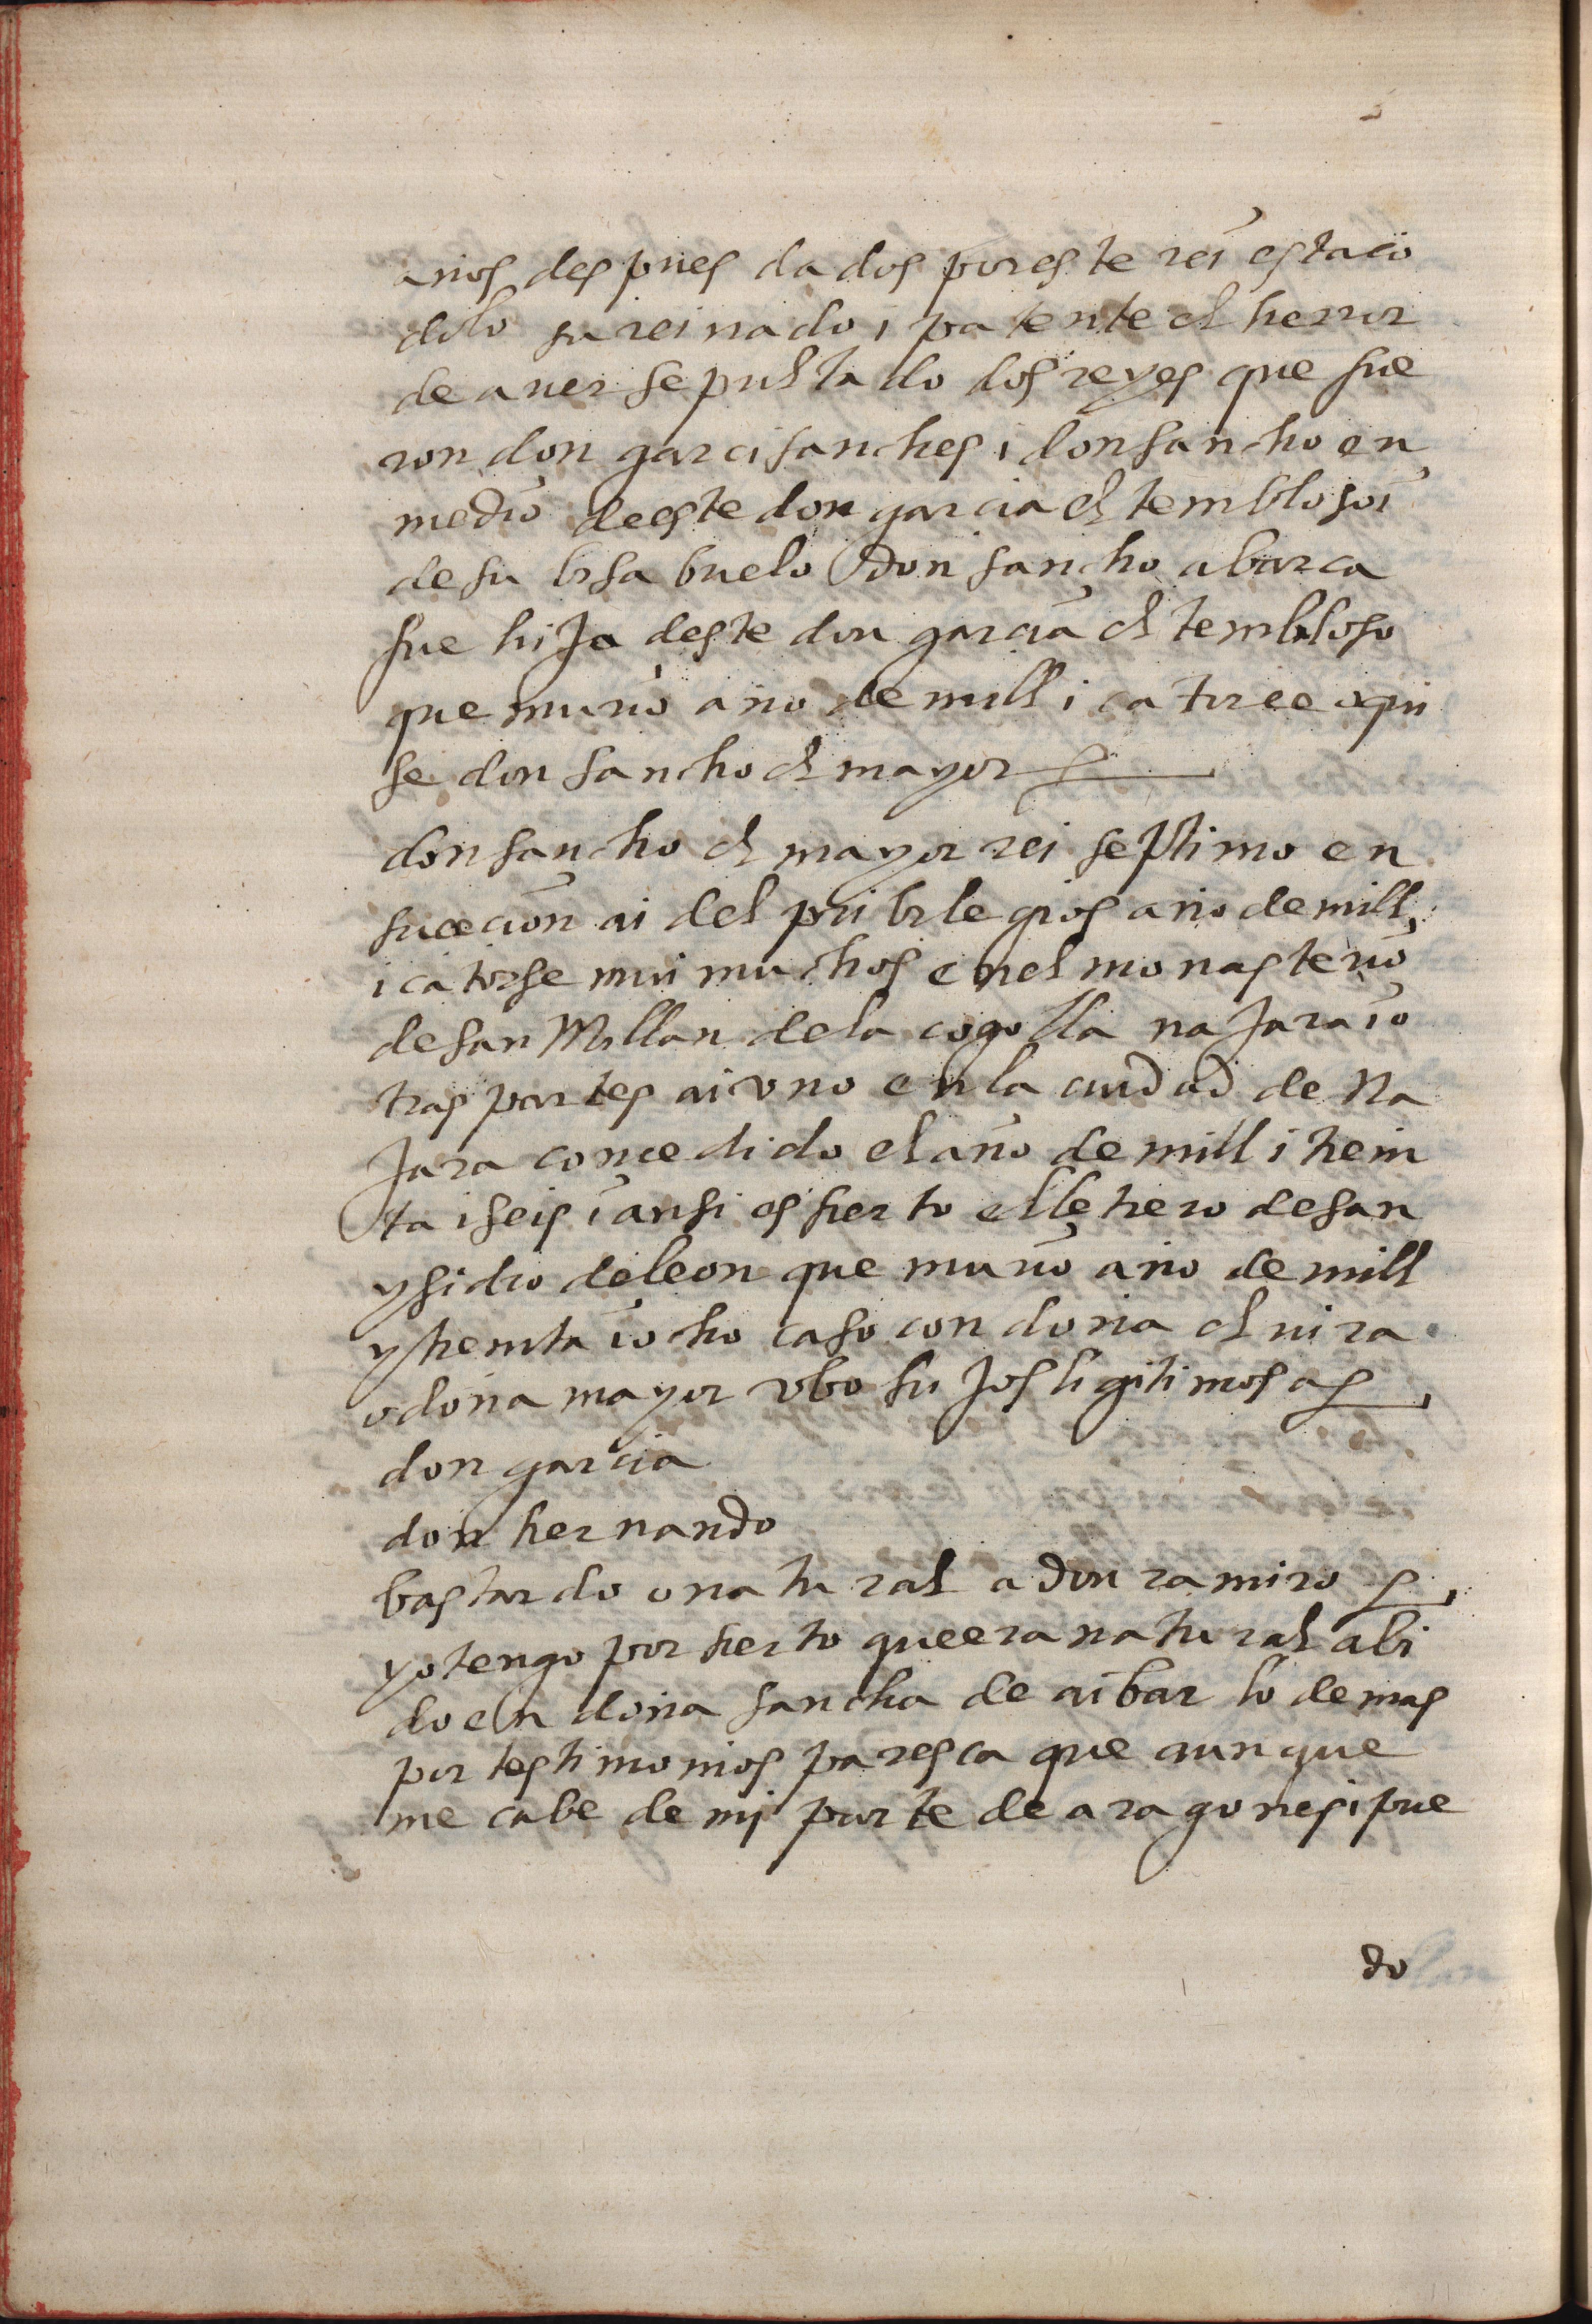 años despues dados por este rei esta co
dilo su reinado i patente el herror
de aver sepultado dos reyes que fue
ron don garci sanches i don sancho en
medio de este don garcia el tembloso i
de su bisabuelo don sancho abarca
fue hijo deste don garcia el tembloso
que murio año de mill i catorce
se don sancho el mayor
don sancho el mayor rei septimo en
sucecion ai del pribilegios año de mill
i catorse mui muchos en el monasterio
de san Millan de la cogolla najara i o
tras partes ai uno en la ciudad de na
jara concedido el año de mill i trein
ta i seis i ansi es sierto el letrero de san
ysidro de leon que murio año de mill
y treinta i ocho caso con doña elvira
o doña mayor vbo hijos ligitimos a
don garcia
don hernando
bastardo o natural a don ramiro
yo tengo por sierto que era natural abi
do en doña sancha de aibar lo demas
por testimonios paresca que aunque
me cabe de mj parte de aragones i pue
do